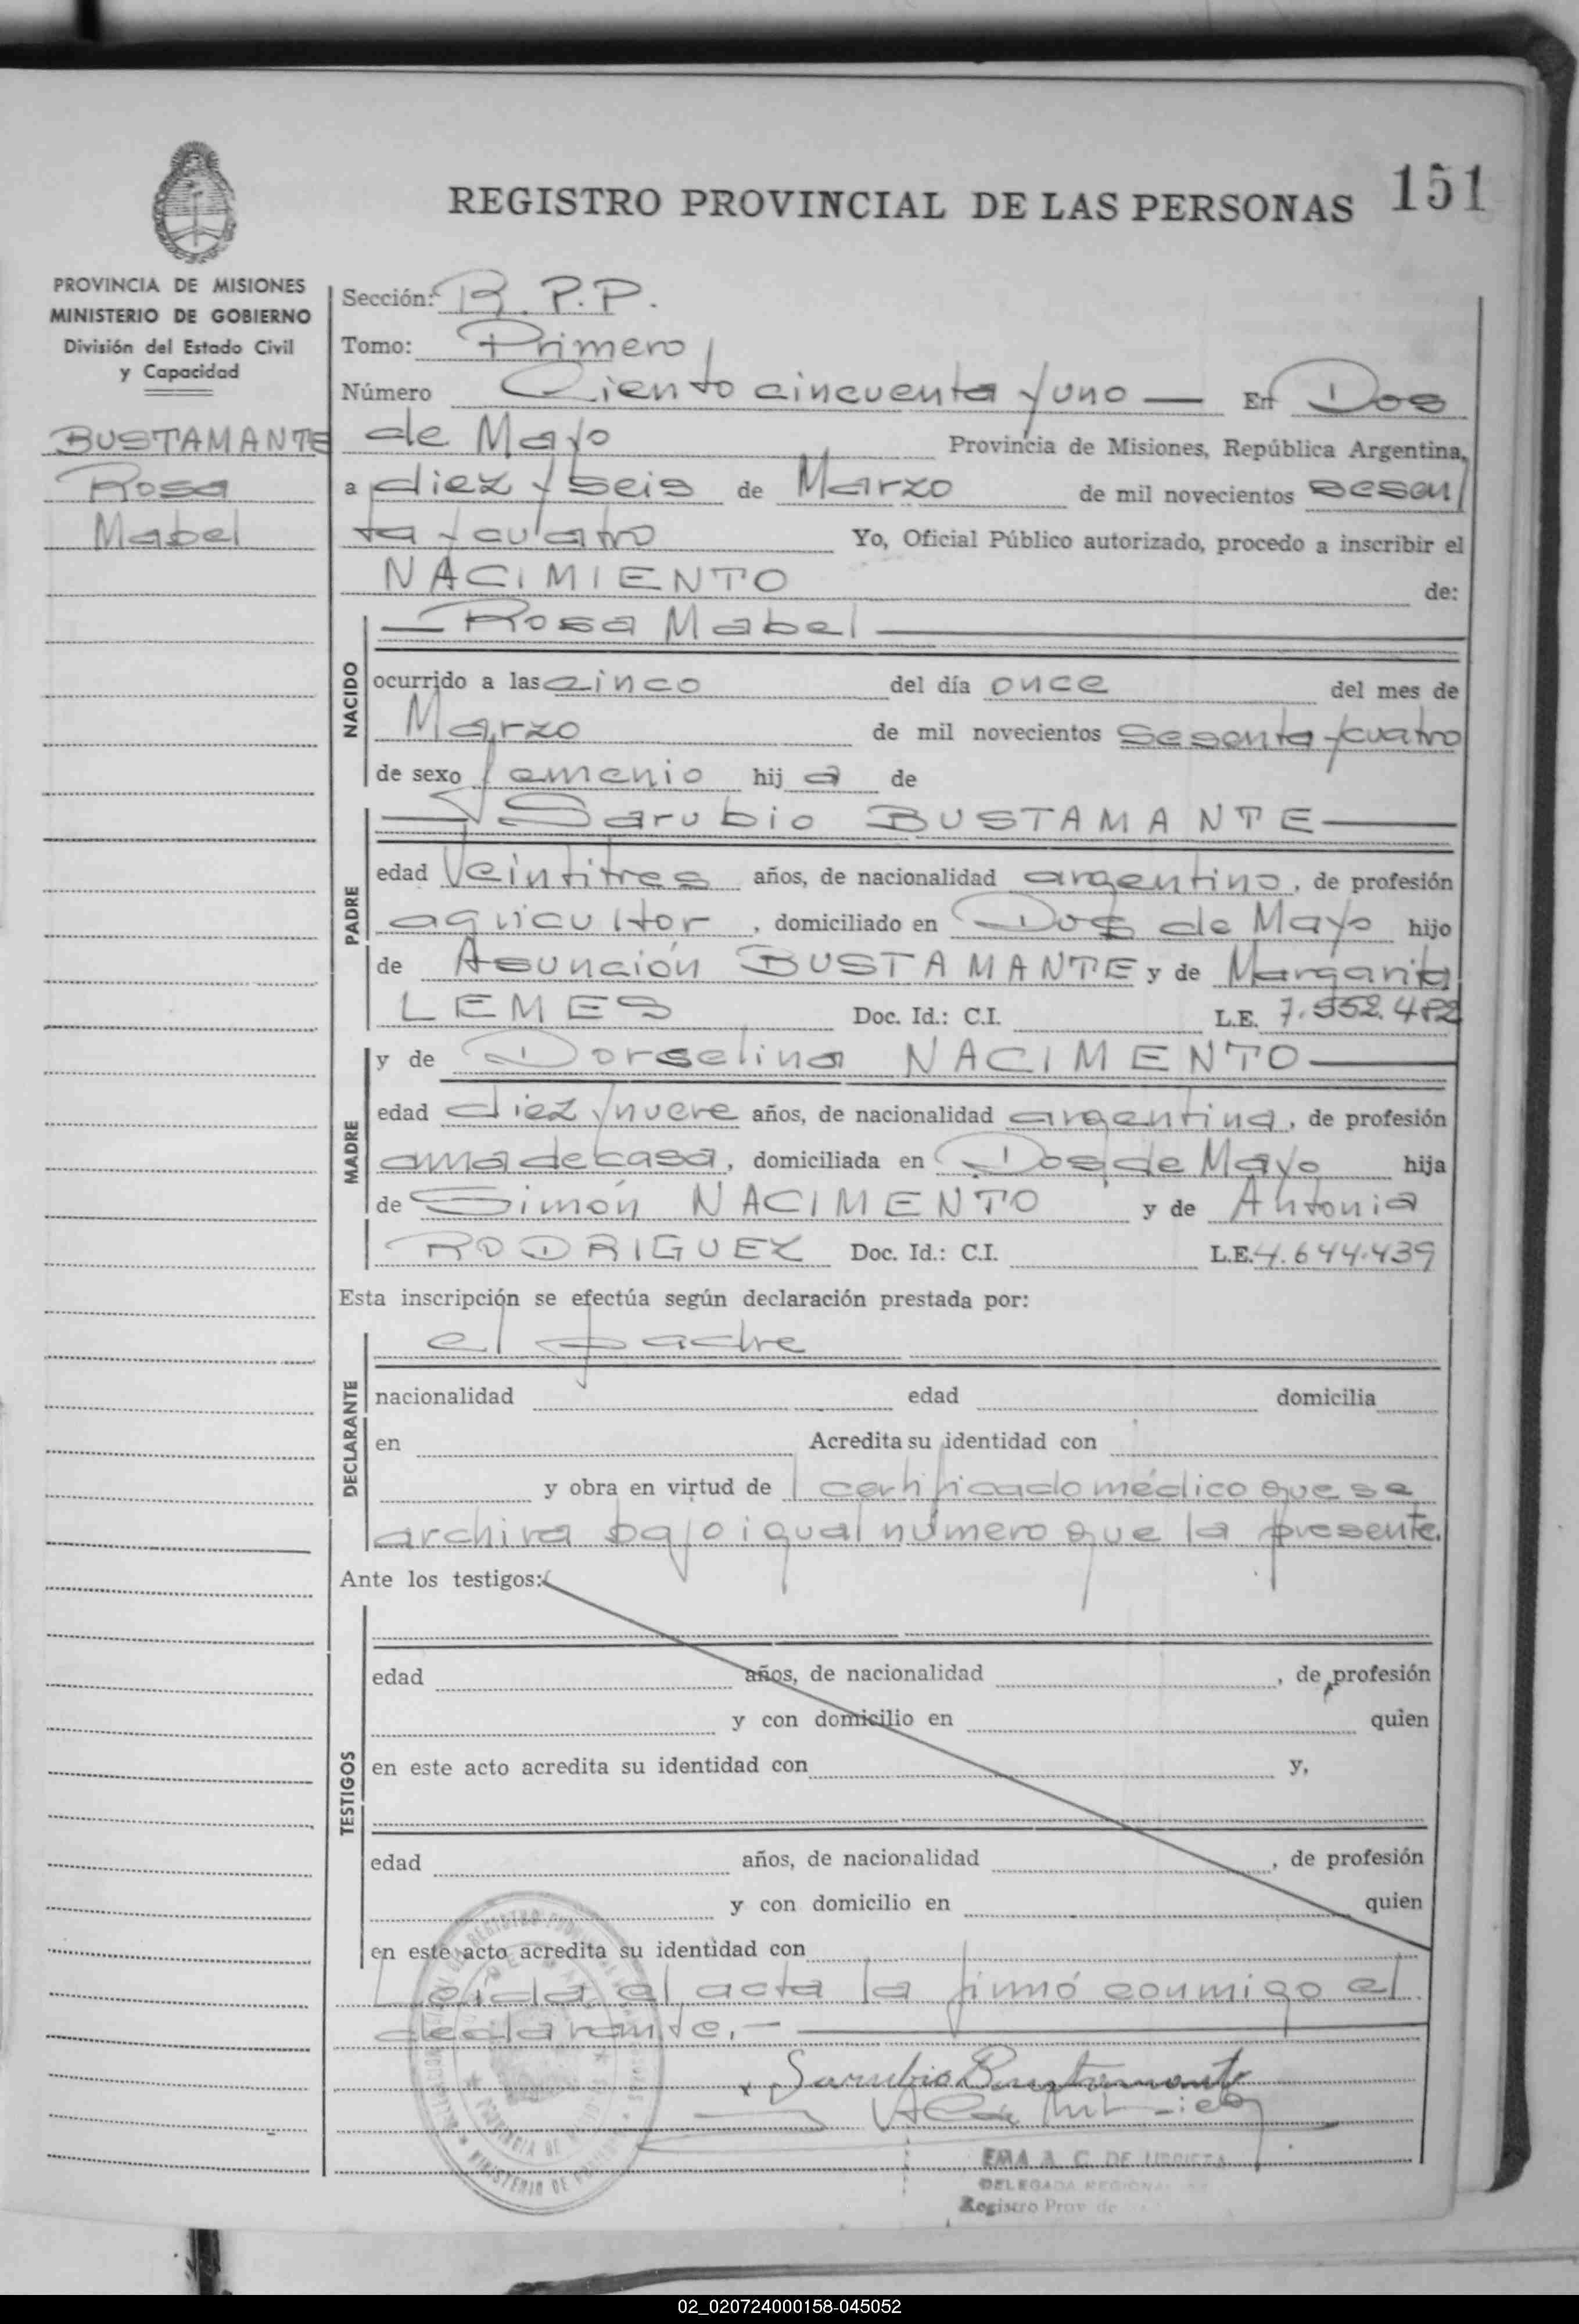 REGISTRO PROVINCIAL DE LAS PERSONAS 151
PROVINCIA DE MISIONES
MINISTERIO DE GOBIERNO
División del Estado Civil
y Capacidad
BUSTAMANTE
Rosa
Mabel
Sección: R.P.P.
Tomo: Primero
Número Ciento cincuenta y uno — En Dos
de Mayo Provincia de Misiones, República Argentina,
a diez y seis de Marzo de mil novecientos sesen
ta y cuatro Yo, Oficial Público autorizado, procedo a inscribir el
NACIMIENTO de:
NACIDO
— Rosa Mabel —
ocurrido a las cinco del día once del mes de
Marzo de mil novecientos sesenta y cuatro
de sexo femenio hij a de
PADRE
— Sarubio BUSTAMANTE —
edad veintitres años, de nacionalidad argentino, de profesión
agricultor, domiciliado en Dos de Mayo hijo
de Asunción BUSTAMANTE y de Margarita
LEMES Doc. Id.: C.I. L.E. 7.552.482
MADRE
y de Dorselina NACIMENTO —
edad diez y nueve años, de nacionalidad argentina, de profesión
ama de casa, domiciliada en Dos de Mayo hija
de Simón NACIMENTO y de Antonia
RODRIGUEZ Doc. Id.: C.I. L.E. 4.644.439
Esta inscripción se efectúa según declaración prestada por:
DECLARANTE
el padre
nacionalidad edad domicilia
en Acredita su identidad con
y obra en virtud de certificado médico que se
archiva bajo igual número que la presente.
Ante los testigos:
TESTIGOS
edad años, de nacionalidad , de profesión
y con domicilio en quien
en este acto acredita su identidad con y,
edad años, de nacionalidad , de profesión
y con domicilio en quien
en este acto acredita su identidad con
Leída el acta la firmó conmigo el
declarante.—
Sarubio Bustamante
EMA A. C. DE
DELEGADA REGIONAL
Registro Prov de
02_020724000158-045052